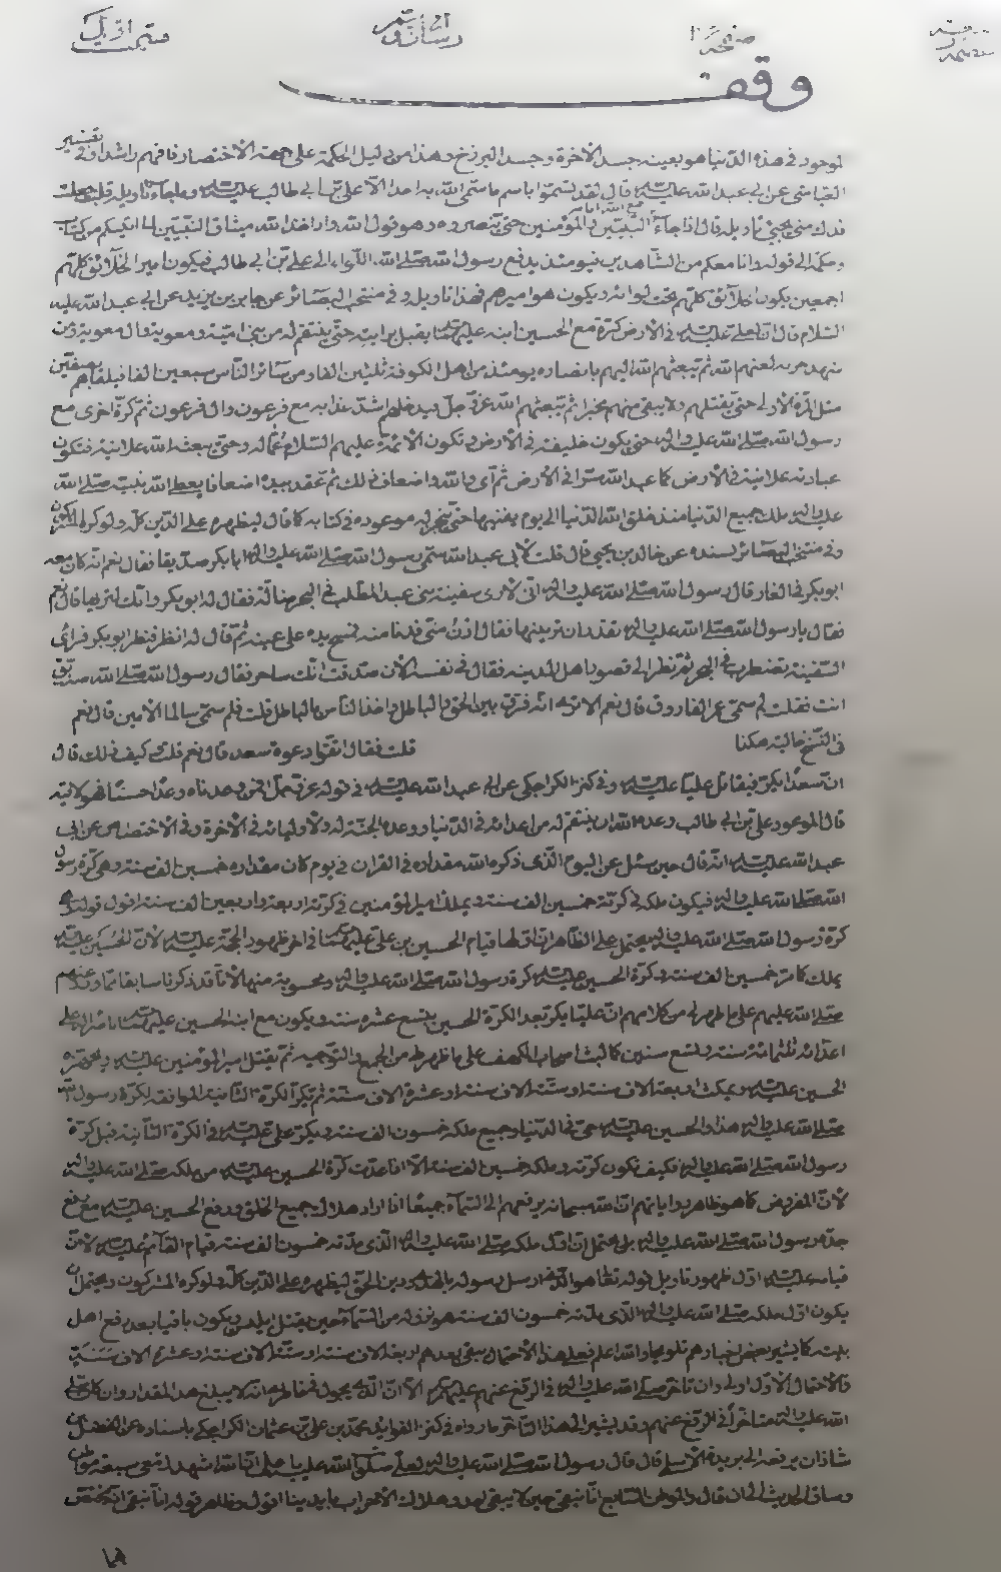 صفحة
وقف
الموجود في هذه الدنيا هو بعينه جسد الآخرة وجسد البرزخ وهذا من دليل الحكمة على جهة الاختصار فافهم راشدا وفي تفسير
العياشي عن ابي عبد الله عليه السلام قال لقد تسموا باسم ما سمى الله به احدا الا علي بن ابي طالب عليه السلام وما جاء تاويله قلت جعلت
فداك متى يجيء تاويله قال اذا جاء جمع الله امامه النبيين والمؤمنين حتى ينصروه وهو قول الله واذ اخذ الله ميثاق النبيين لما اتيتكم من كتاب
وحكمة الى قوله وانا معكم من الشاهدين فيومئذ يدفع رسول الله صلى الله اللواء الى علي بن ابي طالب فيكون امير الخلائق كلهم
اجمعين يكون الخلائق كلهم تحت لوائه ويكون هو اميرهم فهذا تاويله وفي منتخب البصائر عن جابر بن يزيد عن ابي عبد الله عليه
السلام قال ان لعلي عليه السلام في الارض كرة مع الحسين ابنه عليهما السلام يقبل برايته حتى ينتقم له من بني امية ومعوية وال معوية ومن
شهد حربه لعنهم الله ثم يبعث الله اليهم بانصاره يومئذ من اهل الكوفة ثلثين الفا ومن سائر الناس سبعين الفا فيلقاهم بصفين
مثل المرة الاولى حتى يقتلهم ولا يبقى منهم مخبرا ثم يبعثهم الله عز وجل فيدخلهم اشد عذابه مع فرعون وال فرعون ثم كرة اخرى مع
رسول الله صلى الله عليه واله حتى يكون خليفته في الارض وتكون الائمة عليهم السلام عماله وحتى يبعثه الله علانية فتكون
عبادته علانية في الارض كما عبد الله سرا في الارض ثم اي والله واضعاف ذلك ثم عقد بيده اضعافا يعطي الله نبيه صلى الله
عليه واله ملك جميع الدنيا منذ خلق الله الدنيا الى يوم يفنيها حتى ينجز له موعوده في كتابه كما قال ليظهره على الدين كله ولو كره المشركون
وفي منتخب البصائر بسنده عن خالد بن يحيى قال قلت لابي عبد الله سمى رسول الله صلى الله عليه واله ابا بكر صديقا فقال نعم انه كان معه
ابو بكر في الغار قال رسول الله صلى الله عليه واله اني لارى سفينة بني عبد المطلب في البحر ضالة فقال له ابو بكر وانك لتراها قال نعم
فقال يا رسول الله صلى الله عليه واله تقدر ان ترينيها فقال ادن مني فدنا منه فمسح يده على عينيه ثم قال له انظر فنظر ابو بكر فراى
السفينة تضطرب في البحر ثم نظر الى قصور اهل المدينة فقال في نفسه الان صدقت انك ساحر فقال رسول الله صلى الله صديق
انت فقلت لم سمي عمر الفاروق قال نعم الا ترى انه فرق بين الحق والباطل واخذ الناس بالباطل قلت فلم سمى سالما الامين قال نعم
في النسخ خالية هكذا قلت فقال اتقوا دعوة سعد قال نعم قلت كيف ذلك قال
ان سعدا يكر فيقاتل عليا عليه السلام وفي كنز الكراجكي عن ابي عبد الله عليه السلام في قوله عز وجل افمن وعدناه وعدا حسنا فهو لاقيه
قال الموعود علي بن ابي طالب وعده الله ان ينتقم له من اعدائه في الدنيا ووعده الجنة له ولاوليائه في الآخرة وفي الاختصاص عن ابي
عبد الله عليه السلام انه قال حين سئل عن اليوم الذي ذكره الله مقداره في القران في يوم كان مقداره خمسين الف سنة وهي كرة رسول
الله صلى الله عليه واله فيكون ملكه في كرته خمسين الف سنة ويملك امير المؤمنين في كرته اربعة واربعين الف سنة اقول قوله
كرة رسول الله صلى الله عليه واله يحتمل على الظاهر ان اولها قيام الحسين بن علي عليهما السلام في اخر ظهور الحجة عليه السلام لان الحسين عليه السلام
يملك كما مر خمسين الف سنة وكرة الحسين عليه السلام كرة رسول الله صلى الله عليه واله ومحسوبة منها الا انا قد ذكرنا سابقا
صلى الله عليهم على ما ظهر لي من كلامهم ان عليا يكر بعد الكرة الحسين بتسع عشرة سنة ويكون مع ابنه الحسين عليهما السلام
اعدائه ثلثمائة سنة وتسع سنين كما لبث اصحاب الكهف على ما ظهر لي من الجمع والتوجيه ثم يقتل امير المؤمنين عليه السلام
الحسين عليه السلام ويمكث اربعة الاف سنة او ستة الاف سنة او عشرة الاف سنة ثم يكر الكرة الثانية الموافقة لكرة رسول الله
صلى الله عليه واله هذا والحسين عليه السلام حي في الدنيا وجميع ملكه خمسون الف سنة ويكر علي عليه السلام في الكرة الثانية قبل كرة
رسول الله صلى الله عليه واله فكيف تكون كرته وملكه خمسين الف سنة الا اذا عدت كرة الحسين عليه السلام من ملكه صلى الله عليه واله
لان المفروض كما هو ظاهر رواياتهم ان الله سبحانه يرفعهم الى السماء جميعا اذا اراد هلاك جميع الخلق ورفع الحسين عليه السلام مع رفع
جده رسول الله صلى الله عليه واله بل يحتمل ان اول ملكه صلى الله عليه واله الذي مدته خمسون الف سنة قيام القائم عليه السلام لان
قيامه عليه السلام اول ظهور تاويل قوله تعالى هو الذي ارسل رسوله بالهدى ودين الحق ليظهره على الدين كله ولو كره المشركون ويحتمل ان
يكون اول ملكه صلى الله عليه واله الذي مدته خمسون الف سنة هو نزوله من السماء حين يقتل ابليس ويكون باقيا بعد رفع اهل
بيته كما يشير بعض اخبارهم تلويحا والله اعلم فعلى هذا الاحتمال يبقى بعدهم اربعة الاف سنة او ستة الاف سنة او عشرة الاف سنة
فالاحتمال الاول اولى وان تاخر صلى الله عليه واله في الرفع عنهم عليهم السلام الا ان الذي يجول في خاطري انه لا يبلغ هذا المقدار وان كان صلى
الله عليه واله متاخرا في الرفع عنهم وقد يشير الى هذا التاخر ما رواه في كنز الفوائد محمد بن علي بن عثمان الكراجكي باسناده عن الفضل بن
شاذان يرفعه الى بريدة الاسلمي قال قال رسول الله صلى الله عليه واله لعلي صلى الله عليه يا علي ان الله اشهدك معي سبعة مواطن
وساق الحديث الى ان قال والموطن السابع انا نبقى حين لا يبقى احد وهلاك الاحزاب بايدينا اقول وظاهر قوله انا نبقى